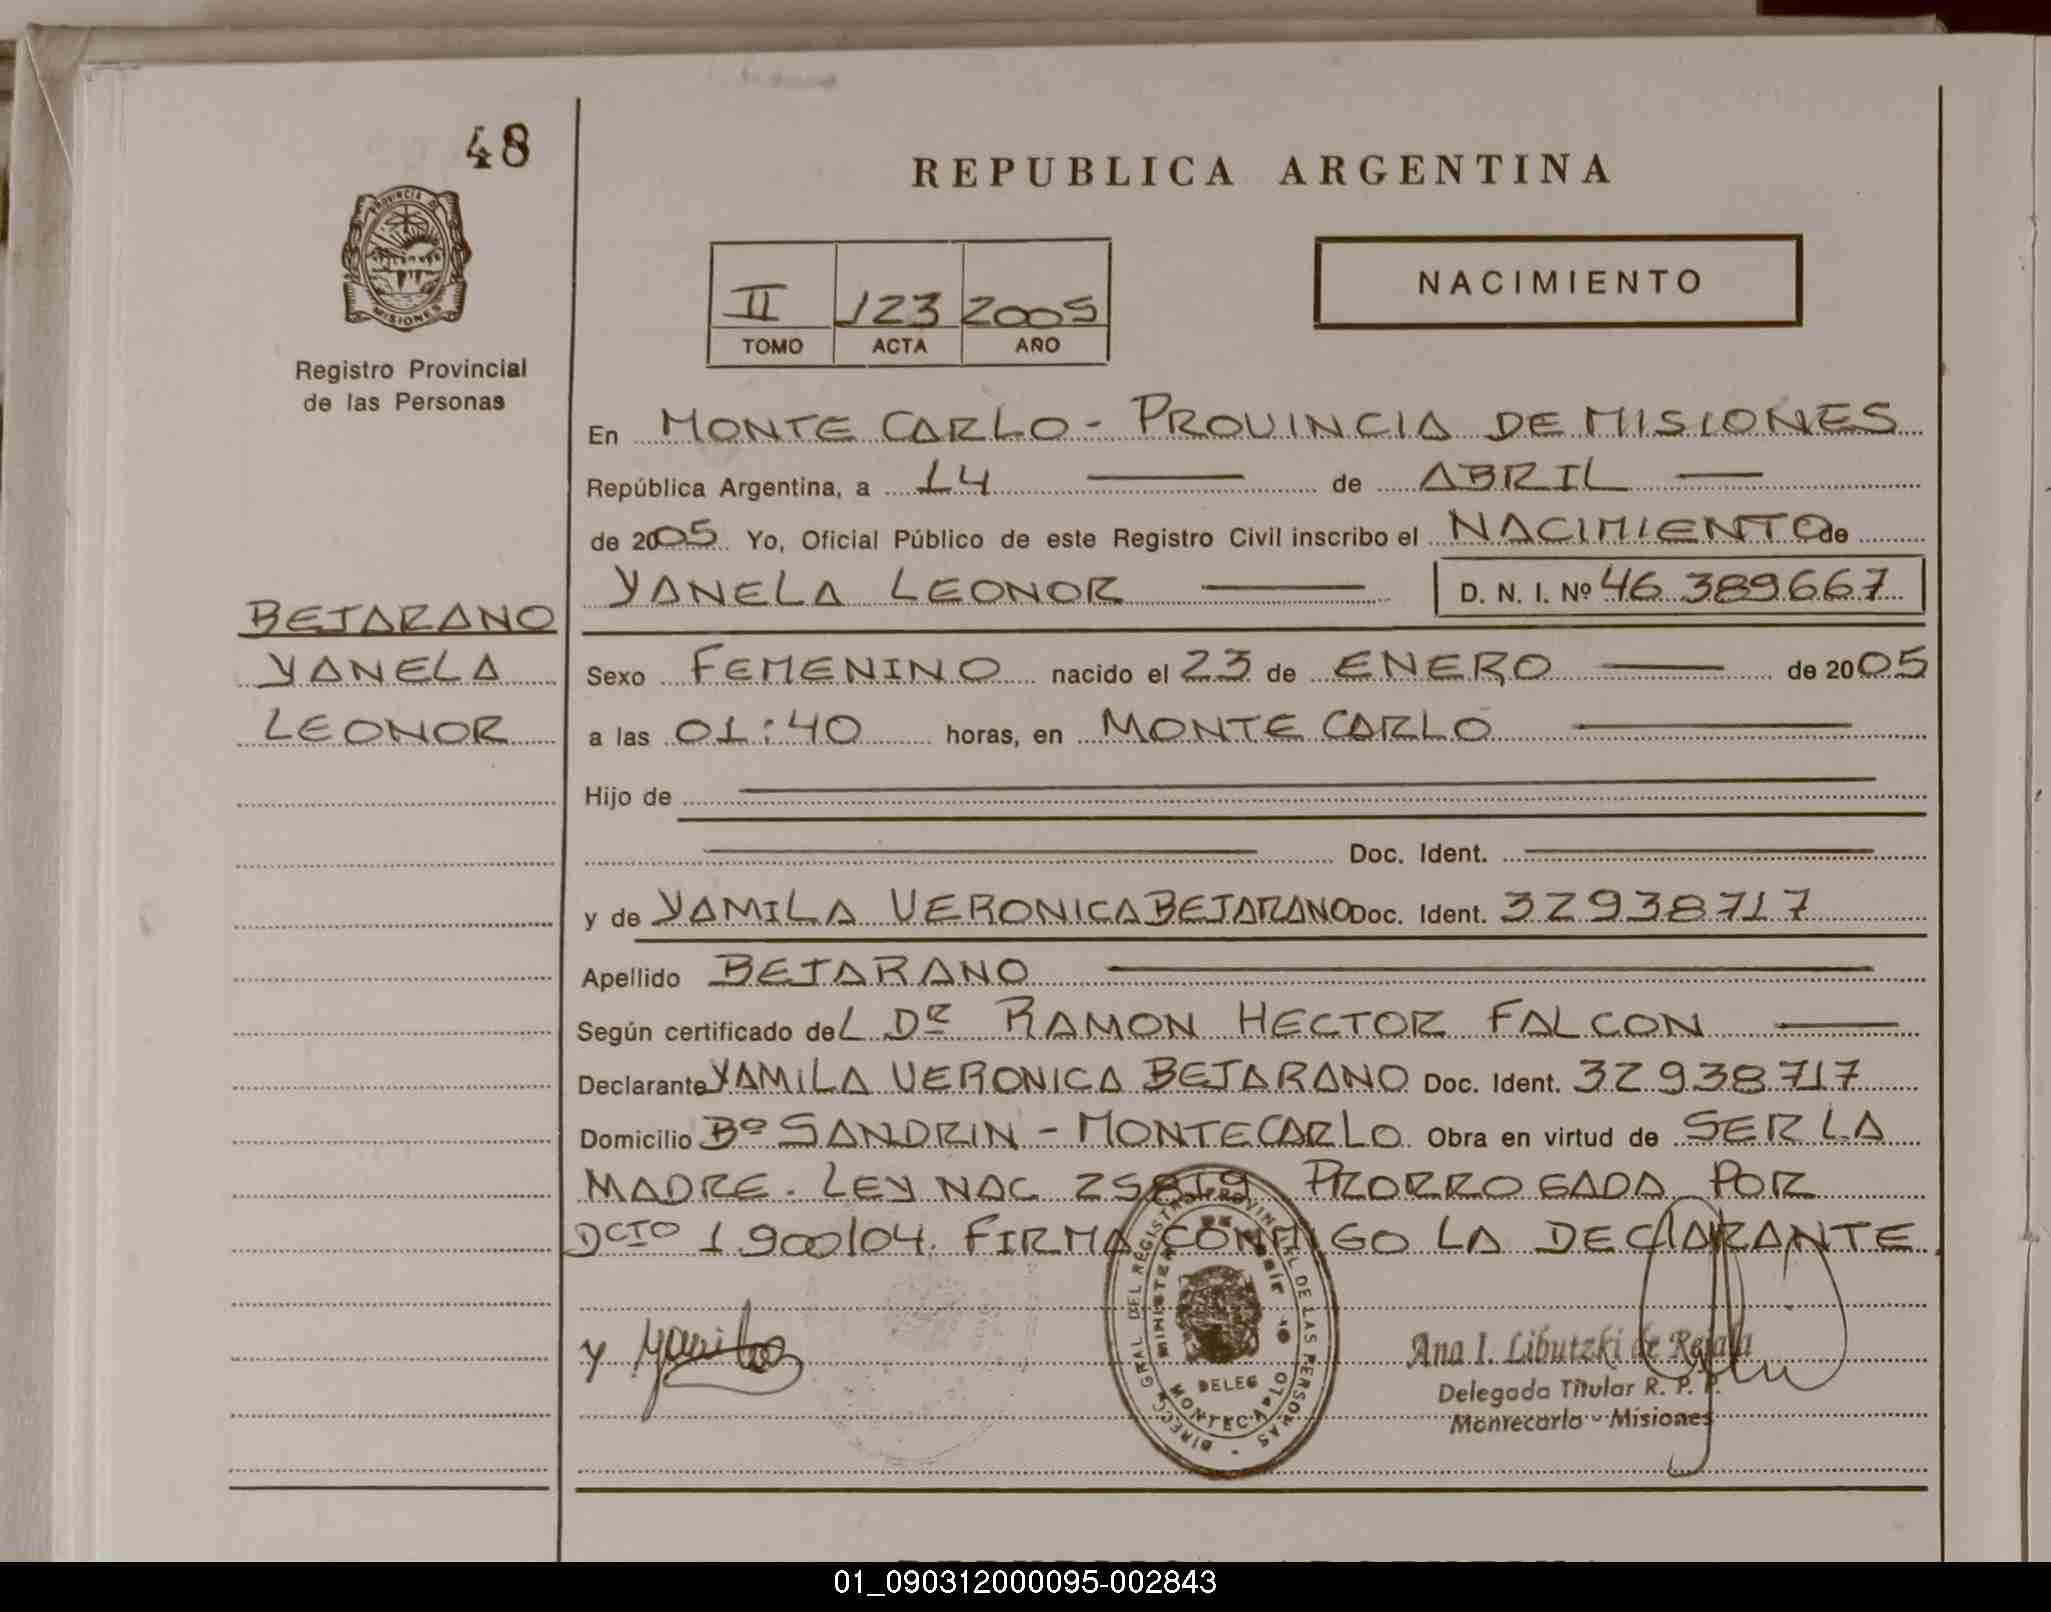 48
PROVINCIA DE
MISIONES
Registro Provincial
de las Personas
REPUBLICA ARGENTINA
II 123 2005
TOMO ACTA AÑO
NACIMIENTO
En MONTE CARLO - PROVINCIA DE MISIONES
República Argentina, a 14 de ABRIL
de 2005 Yo, Oficial Público de este Registro Civil inscribo el NACIMIENTO de
YANELA LEONOR D. N. I. Nº 46.389.667
BEJARANO
YANELA
LEONOR
Sexo FEMENINO nacido el 23 de ENERO de 2005
a las 01:40 horas, en MONTE CARLO
Hijo de
Doc. Ident.
y de YAMILA VERONICA BEJARANO Doc. Ident. 32938717
Apellido BEJARANO
Según certificado del Dr RAMON HECTOR FALCON
Declarante YAMILA VERONICA BEJARANO Doc. Ident. 32938717
Domicilio Bº SANDRIN - MONTECARLO Obra en virtud de SER LA
MADRE. LEY NAC 25819 PRORROGADA POR
DCTO 1900/04. FIRMA CONMIGO LA DECLARANTE.
DIRECC. GRAL DEL REGISTRO PROVINCIAL DE LAS PERSONAS
DELEG
MONTECARLO
Ana I. Libutzki de Rejala
Delegada Titular R. P. P.
Montecarlo - Misiones
01_090312000095-002843